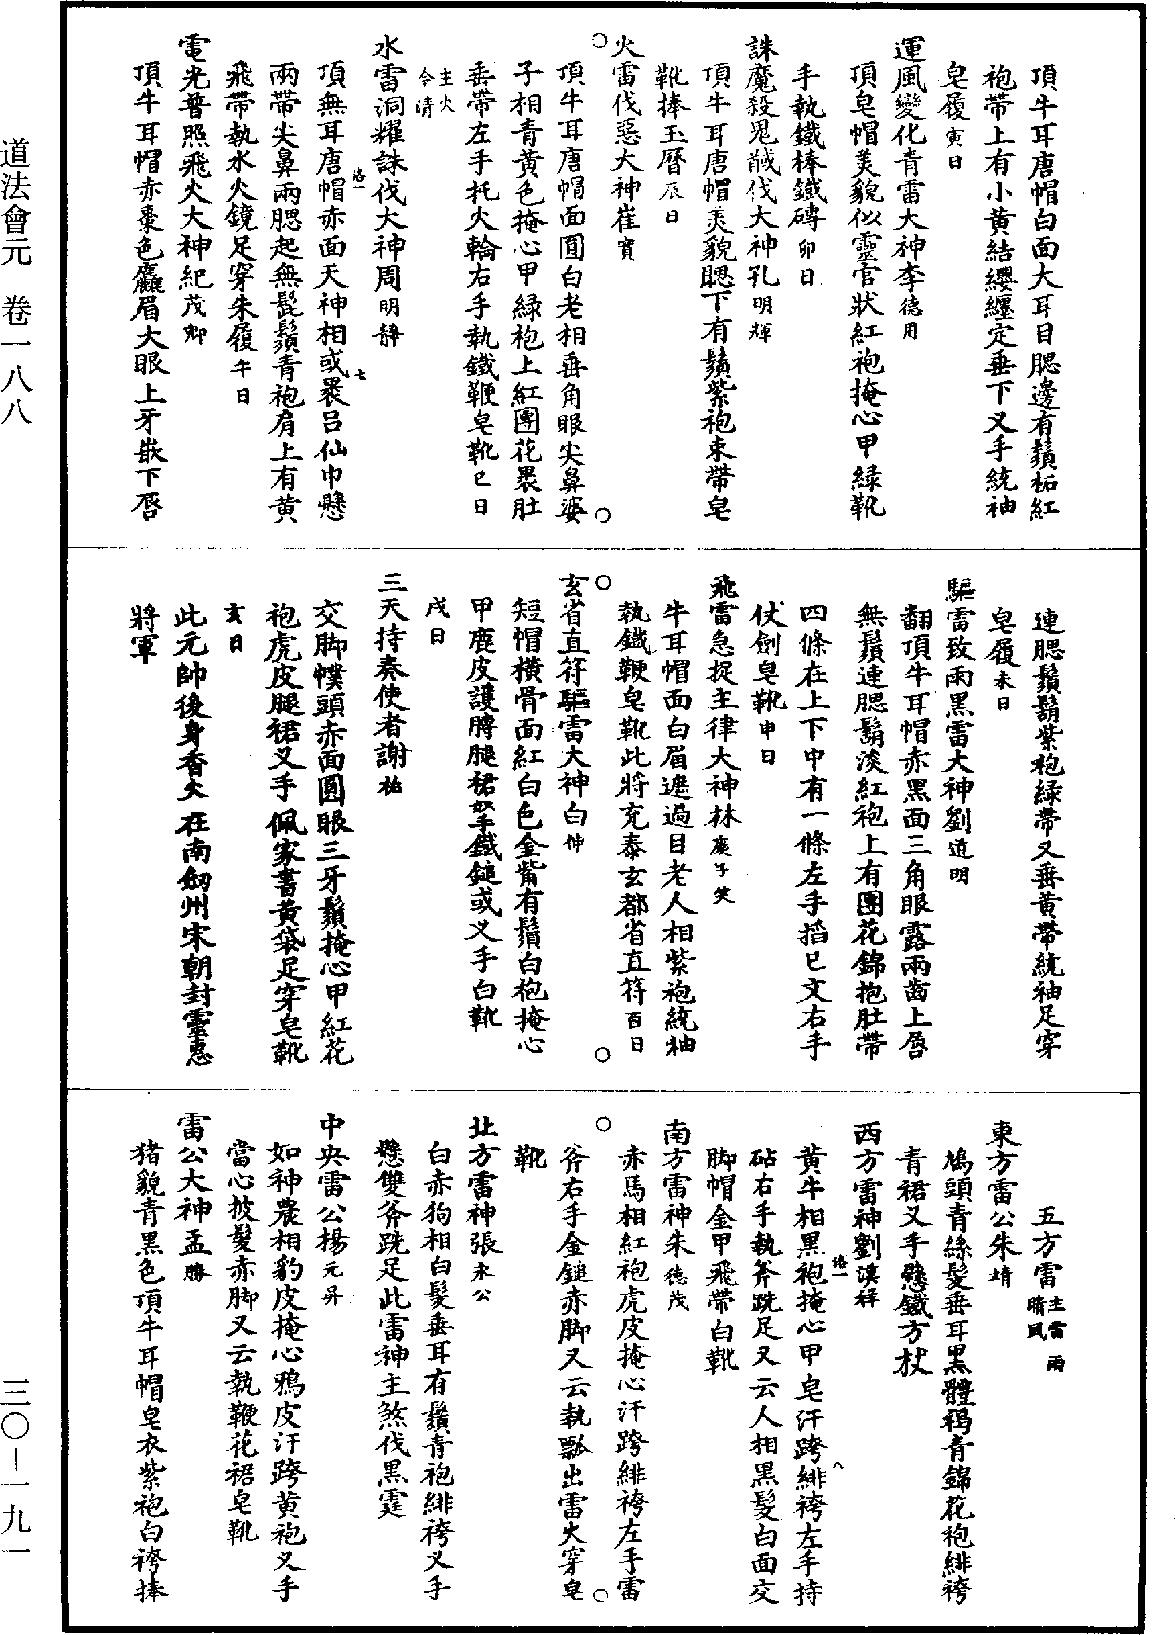 頂牛耳唐帽白面大耳目腮邊有鬚柘紅
袍帶上有小黄結纓纏定垂下叉手統袖
皂履寅日
運風變化青雷大神李德用
頂皂帽美貌似靈官狀紅袍掩心甲緑靴
手執鐵棒鐵磚卯日
誅魔殺鬼馘伐大神孔明輝
頂牛耳唐帽美貌腮下有鬚紫袍束帶皂
靴捧玉曆辰日
火雷伐惡大神崔賓
頂牛耳唐帽面圓白老相垂角眼尖鼻婆
子相青黄色掩心甲緑袍上紅團花褁肚
垂帶左手托火輪右手執鐵鞭皂靴巳日
主火
令清
水雷洞耀誅伐大神周明靜
頂無耳唐帽赤面天神相或褁吕仙巾懸
兩帶尖鼻兩腮起無髭鬚青袍肩上有黄
飛帶執水火鏡足穿朱履午日
電光普照飛火大神紀茂卿
頂牛耳帽赤棗色麤眉大眼上牙嵌下唇
連腮鬚鬍紫袍緑帶又垂黄帶統袖足穿
皂履未日
驅雷致雨黑雷大神劉道明
翻頂牛耳帽赤黑面三角眼露兩齒上唇
無鬚連腮鬍淡紅袍上有團花錦抱肚帶
四條在上下中有一條左手搯巳文右手
仗劍皂靴申日
飛雷急捉主律大神林慶子笑
牛耳帽面白眉遮過目老人相紫袍統袖
執鐵鞭皂靴此將充泰玄都省直符酉日
玄省直符驅雷大神白仲
短帽橫骨面紅白色金觜有鬚白袍掩心
甲鹿皮護膊腿裙叉手鐵鎚或叉手白靴
戌日
三天持奏使者謝祐
交脚幞頭赤面圓眼三牙鬚掩心甲紅花
袍虎皮腿裙叉手佩家書黄袋足穿皂靴
亥日
此元帥後身香火在南劒州宋朝封靈惠
將軍
五方雷主雷雨晴風
東方雷公朱靖
鳩頭青絲髮垂耳黑體裼青錦花袍緋袴
青裙叉手懸鐵方杖
西方雷神劉漢祥
黄牛相黑袍掩心甲皂汗跨緋袴左手持
砧右手執斧跣足又云人相黑髮白面交
脚帽金甲飛帶白靴
南方雷神朱德茂
赤馬相紅袍虎皮掩心汗跨緋袴左手雷
斧右手金鎚赤脚又云執瓢出雷火穿皂
靴
北方雷神張永公
白赤狗相白髮垂耳有鬚青袍緋袴叉手
懸雙斧跣足此雷神主煞伐黑霆
中央雷公楊元昇
如神農相豹皮掩心鴉皮汗跨黄袍叉手
當心披髮赤脚又云執鞭花裙皂靴
雷公大神孟勝
猪貌青黑色頂牛耳帽皂衣紫袍白袴捧
道法會元 卷一八八
三〇-一九一